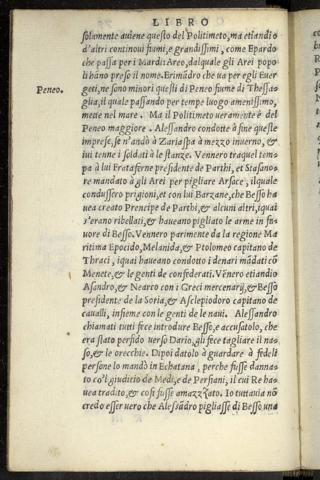 LIBRO
solamente auiene questo del Politimeto, ma etiãdio
d'altri continoui fiumi, e grandissimi, come Epardo
che passa per i Mardi: Areo, dalquale gli Arei popo
li hãno preso il nome. Erimãdro che va per egli Euer
geti, ne sono minori questi di Peneo fiume di Thessa
Peneo.
glia, il quale passando per tempe luogo amenissimo,
mette nel mare. Ma il Politimeto veramente è del
Peneo maggiore. Alessandro condotte à fine queste
imprese, se n'andò à Zariaspa à mezzo inuerno, &
lui tenne i soldati à le stanze. Vennero traquel tem
pa à lui Frataferne presidente de Parthi, et Stasano
re mandato à gli Arei per pigliare Arsace, il quale
condussero prigioni, et con lui Barzane, che Besso ha
uea creato Prencipe de Parthi, & alcuni altri, iquai
s'erano ribellati, & haueano pigliato le arme in fa
uore di Besso. Vennero parimente da la regione Ma
ritima Epocido, Melanida, & Ptolomeo capitano de
Thraci, iquai haueano condotto i denari mãdati cõ
Menete, & le genti de confederati. Vẽnero etiandio
Asandro, & Nearco con i Greci mercenarij, & Besso
presidente de la Soria, & Asclepiodoro capitano de
caualli, insieme con le genti de le naui. Alessandro
chiamati tutti fece introdure Besso, e accusatolo, che
era stato perfido verso Dario, gli fece tagliare il na-
so, & le orecchie. Dipoi datolo à guardare à fedeli
persone lo mandò in Echatana, perche fusse danna-
to co'l giuditio de Medi, e de Persiani, il cui Re ha-
uea tradito, & cosi fusse amazzato. Io tuttauia nõ
credo esser vero che Alessãdro pigliasse di Besso una